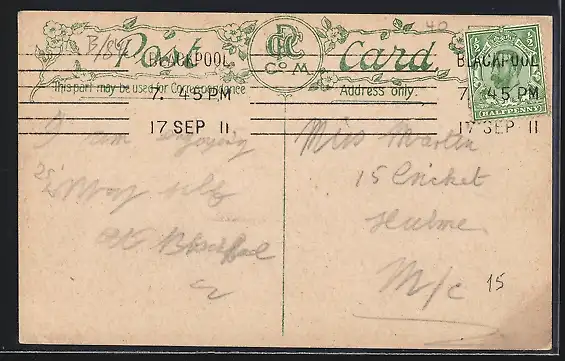 B/84
40
Post card
CoM
This part may be used for Correspondence
Address only.
BLACKPOOL
7. 45 PM
17 SEP 11
BLACKPOOL
7. 45 PM
17 SEP 11
HALFPENNY
I am enjoying
my self
at Blackpool
Miss Martin
15 Cricket
Hulme
M/c
15